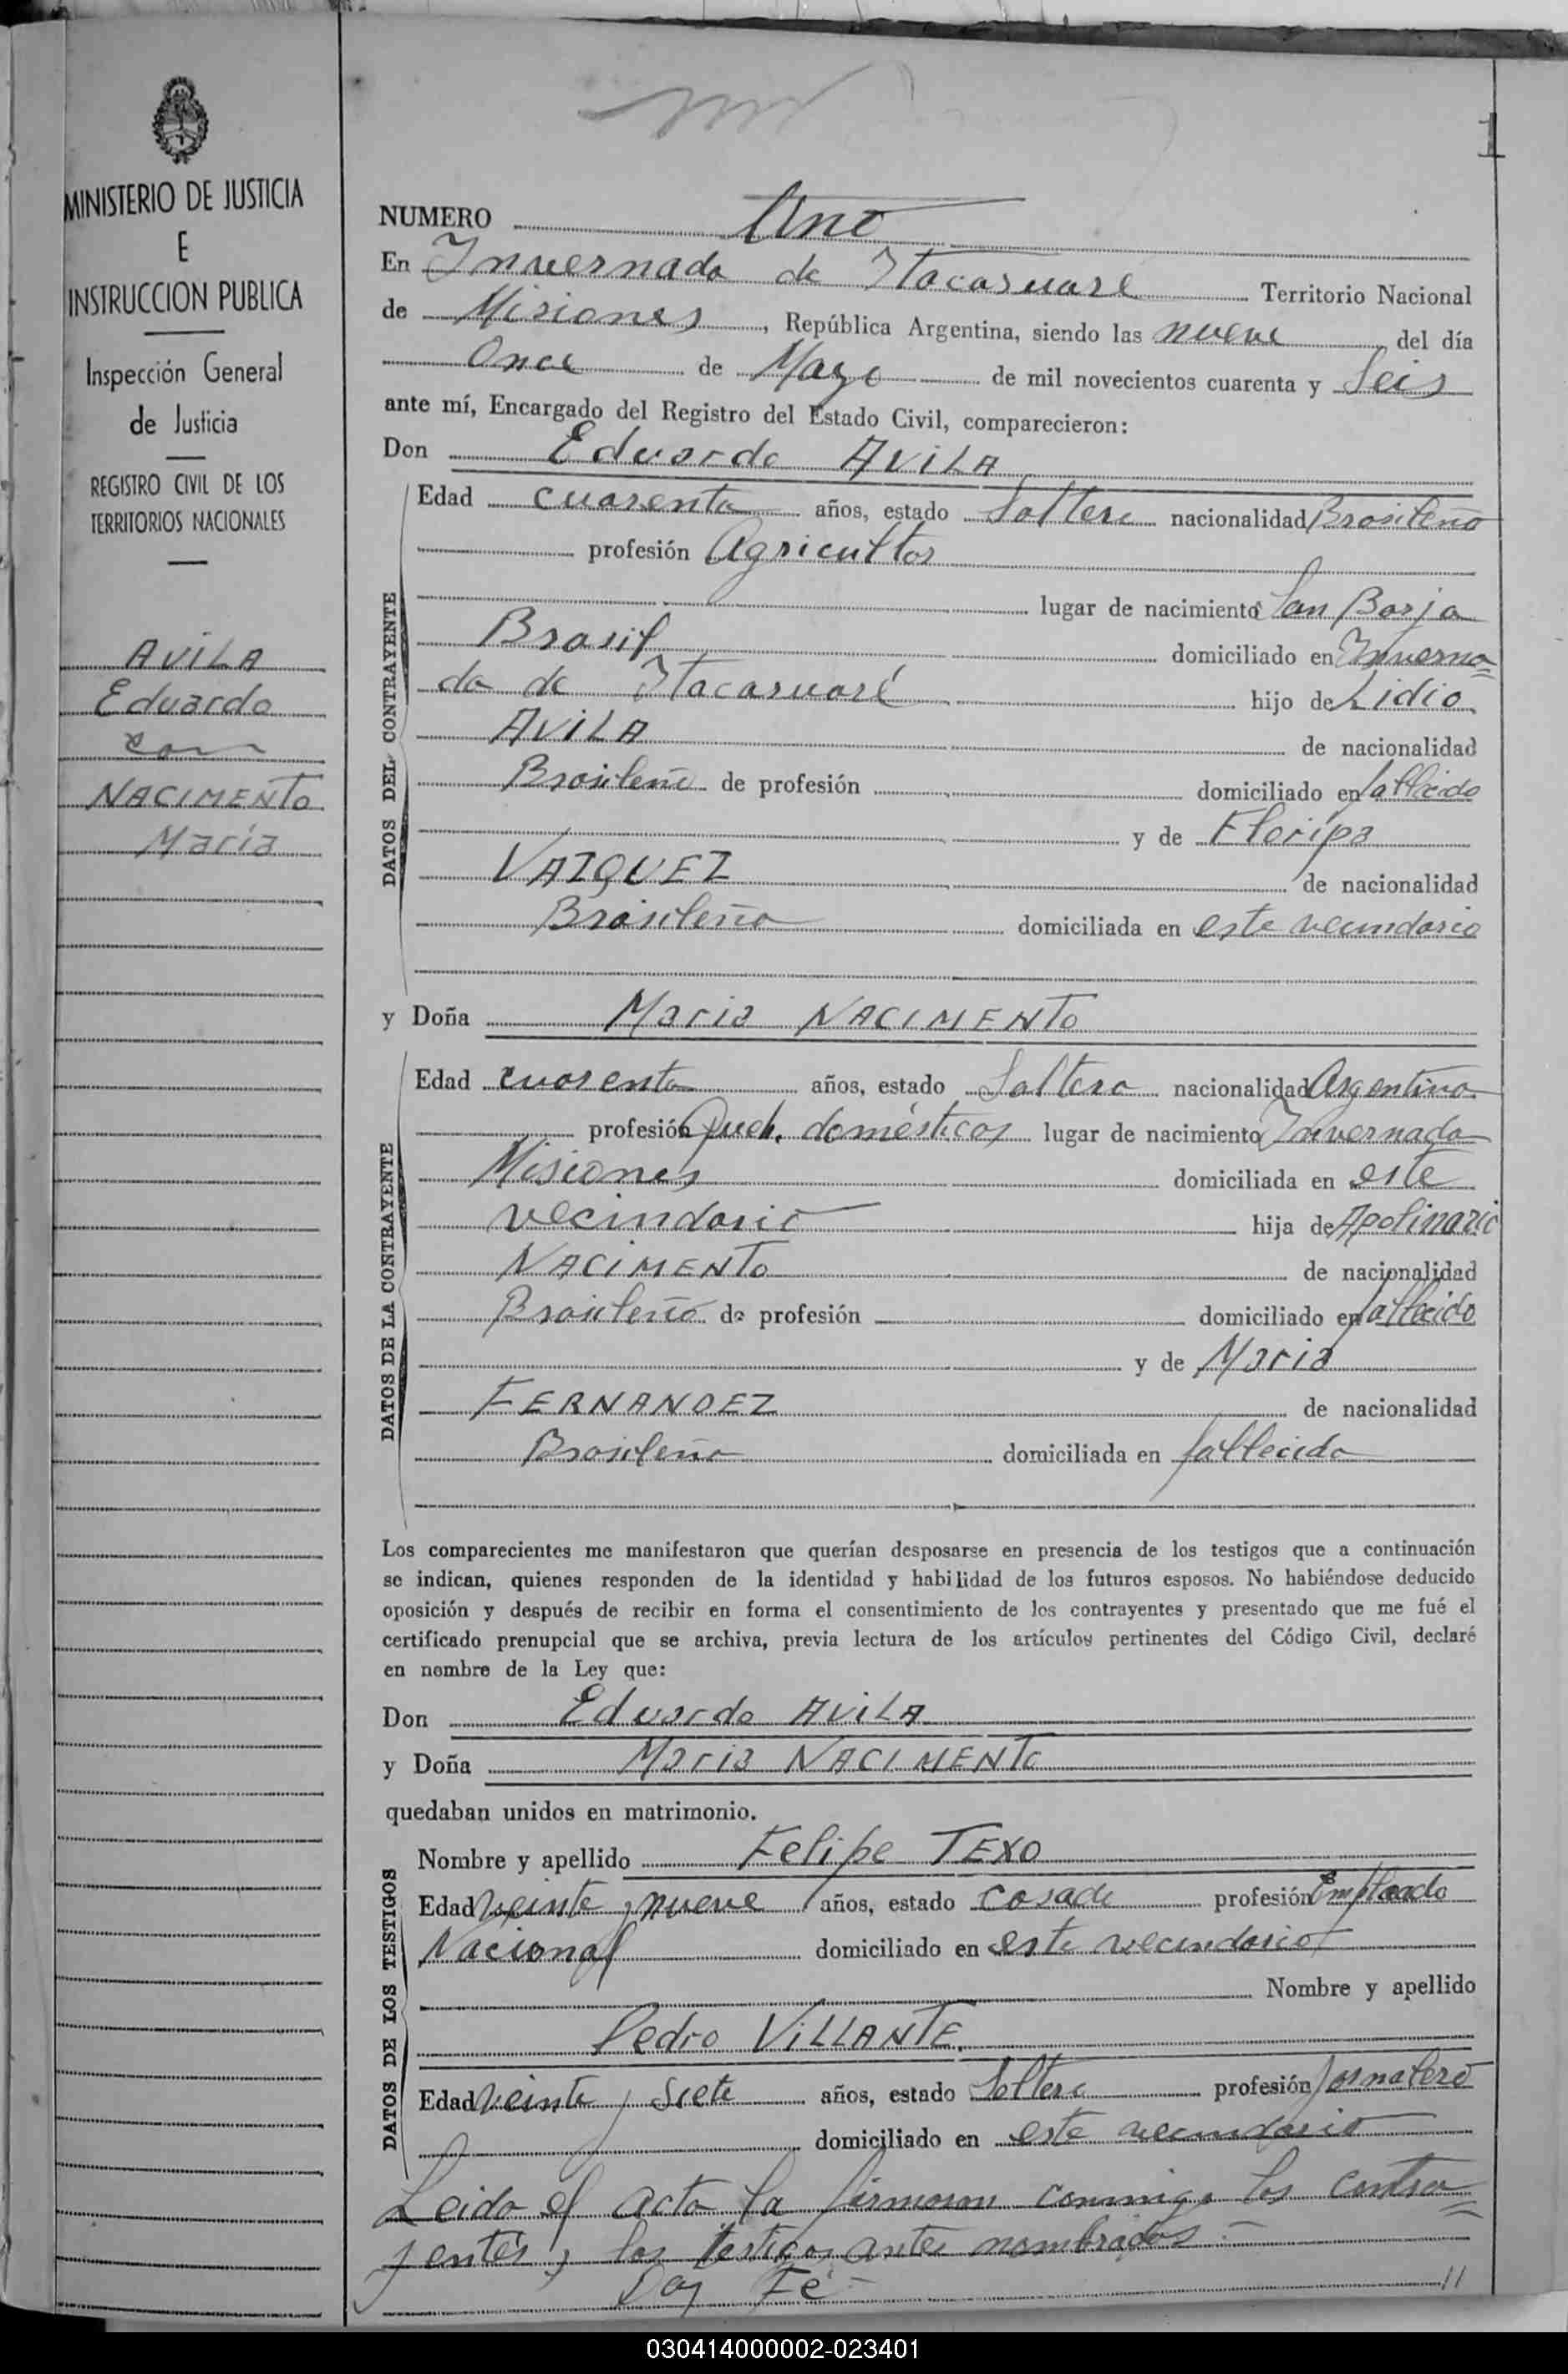 1
MINISTERIO DE JUSTICIA
E
INSTRUCCION PUBLICA
Inspección General
de Justicia
REGISTRO CIVIL DE LOS
TERRITORIOS NACIONALES
AVILA
Eduardo
con
NACIMENTO
Maria
NUMERO Uno
En Invernada de Itacaruaré Territorio Nacional
de Misiones, República Argentina, siendo las nueve del día
Once de Mayo de mil novecientos cuarenta y Seis
ante mí, Encargado del Registro del Estado Civil, comparecieron:
Don Eduardo AVILA
DATOS DEL CONTRAYENTE
Edad cuarenta años, estado Soltero nacionalidad Brasileño
profesión Agricultor
lugar de nacimiento San Borja
Brasil domiciliado en Inverna=
da de Itacaruaré hijo de Lidio
AVILA de nacionalidad
Brasileño de profesión domiciliado en fallecido
y de Floripa
VAZQUEZ de nacionalidad
Brasileña domiciliada en este vecindario
y Doña Maria NACIMENTO
DATOS DE LA CONTRAYENTE
Edad cuarenta años, estado Soltera nacionalidad Argentina
profesión Queh. domésticos lugar de nacimiento Invernada
Misiones domiciliada en este
vecindario hija de Apolinario
NACIMENTO de nacionalidad
Brasileño de profesión domiciliado en fallecido
y de Maria
FERNANDEZ de nacionalidad
Brasileña domiciliada en fallecida
Los comparecientes me manifestaron que querían desposarse en presencia de los testigos que a continuación
se indican, quienes responden de la identidad y habilidad de los futuros esposos. No habiéndose deducido
oposición y después de recibir en forma el consentimiento de los contrayentes y presentado que me fué el
certificado prenupcial que se archiva, previa lectura de los artículos pertinentes del Código Civil, declaré
en nombre de la Ley que:
Don Eduardo AVILA
y Doña Maria NACIMENTO
quedaban unidos en matrimonio.
DATOS DE LOS TESTIGOS
Nombre y apellido Felipe TEXO
Edad veinte y nueve años, estado casado profesión Empleado
Nacional domiciliado en este vecindario
Nombre y apellido
Pedro VILLANTE.
Edad veinte y siete años, estado Soltero profesión Jornalero
domiciliado en este vecindario
Leida el acta la firmaron conmigo los contra=
yentes y los testigos antes nombrados.=
Doy Fé - 11
030414000002-023401